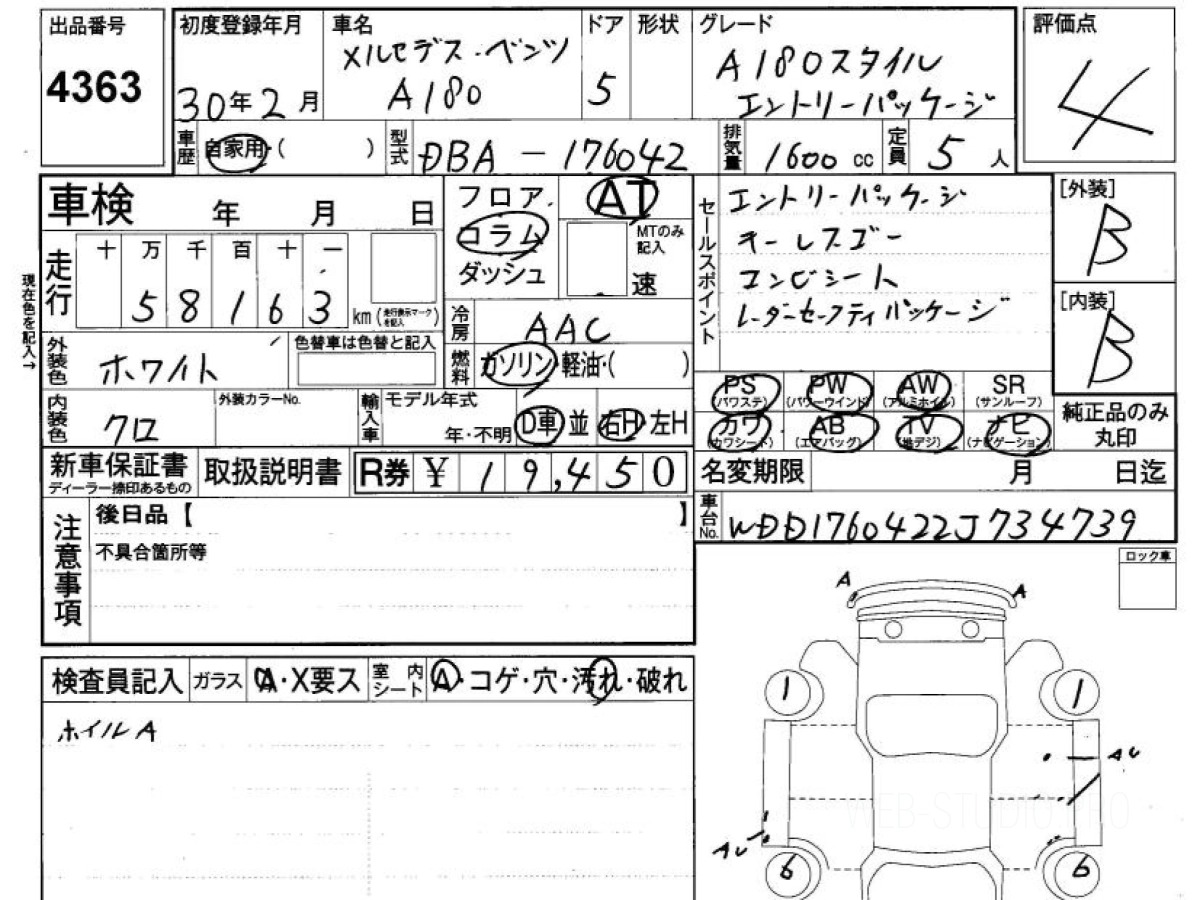 出品番号
4363
初度登録年月
30年2月
車名
メルセデス・ベンツ
A180
ドア
5
形状
グレード
A180スタイル
エントリーパッケージ
評価点
4
車歴
自家用・( )
型式
DBA-176042
排気量
1600 cc
定員
5 人
車検 年 月 日
フロア
コラム
ダッシュ
AT
MTのみ記入
速
セールスポイント
エントリーパッケージ
キーレスゴー
コンビシート
レーダーセーフティパッケージ
[外装]
B
[内装]
B
現在色を記入→
走行
十 万 千 百 十 一
5 8 1 6 3
km (走行表示マークを記入)
冷房
AAC
外装色
ホワイト
色替車は色替と記入
燃料
ガソリン・軽油・( )
内装色
クロ
外装カラーNo.
輸入車
モデル年式
年・不明
D車 並
右H・左H
PS (パワステ)
PW (パワーウインド)
AW (アルミホイル)
SR (サンルーフ)
カワ (カワシート)
AB (エアバッグ)
TV (地デジ)
ナビ (ナビゲーション)
純正品のみ丸印
新車保証書
ディーラー捺印あるもの
取扱説明書
R券 ¥ 19,450
名変期限 月 日迄
車台No.
WDD1760422J734739
注意事項
後日品【 】
不具合箇所等
ロック車
検査員記入
ガラス
A・X要ス
室内シート
A・コゲ・穴・汚れ・破れ
ホイルA
A
A
1
1
AU
AU
6
6
WEB-STUDIO.PRO